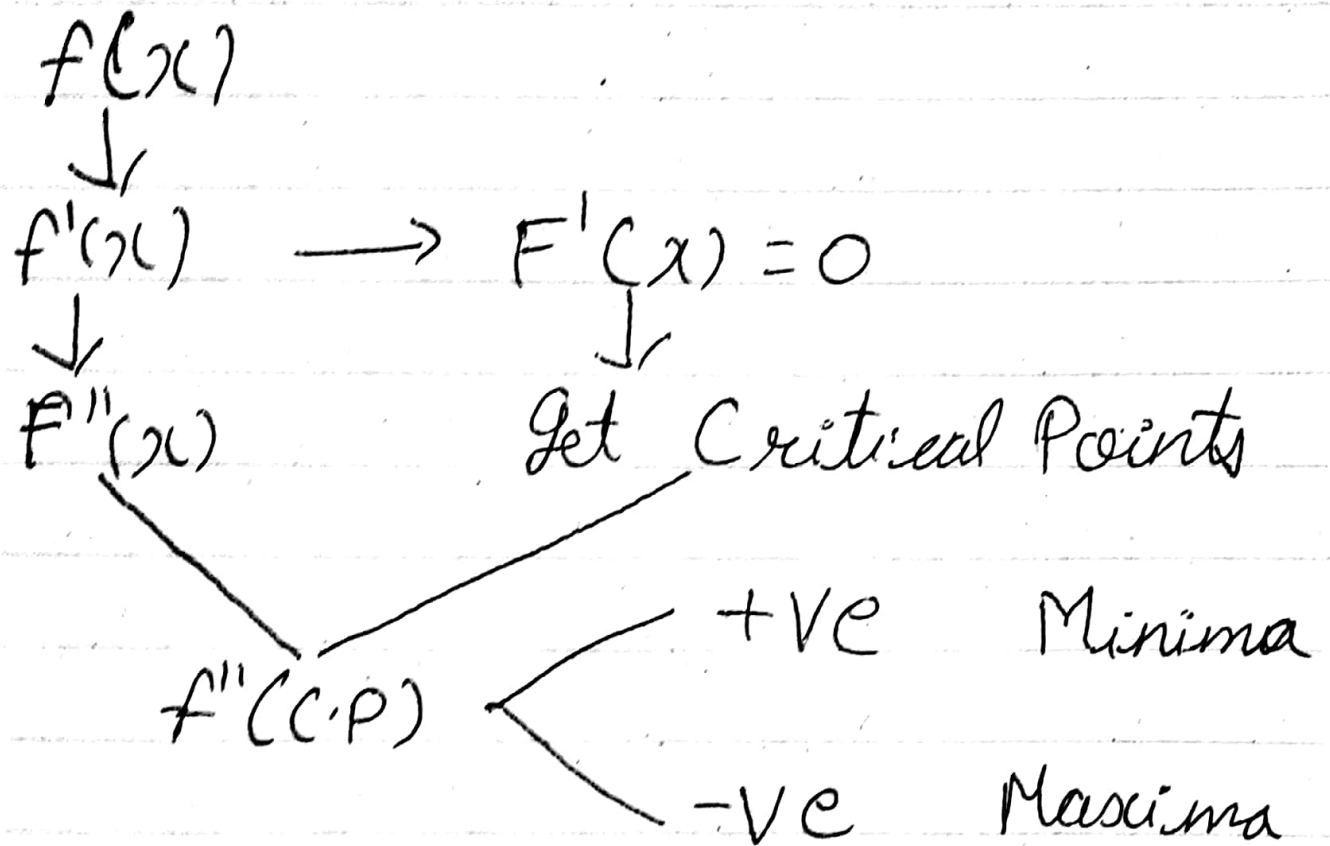 f(x)
f'(x) → F'(x) = 0
F''(x) Get Critical Points
+ve Minima
f''(C.P)
-ve Maxima